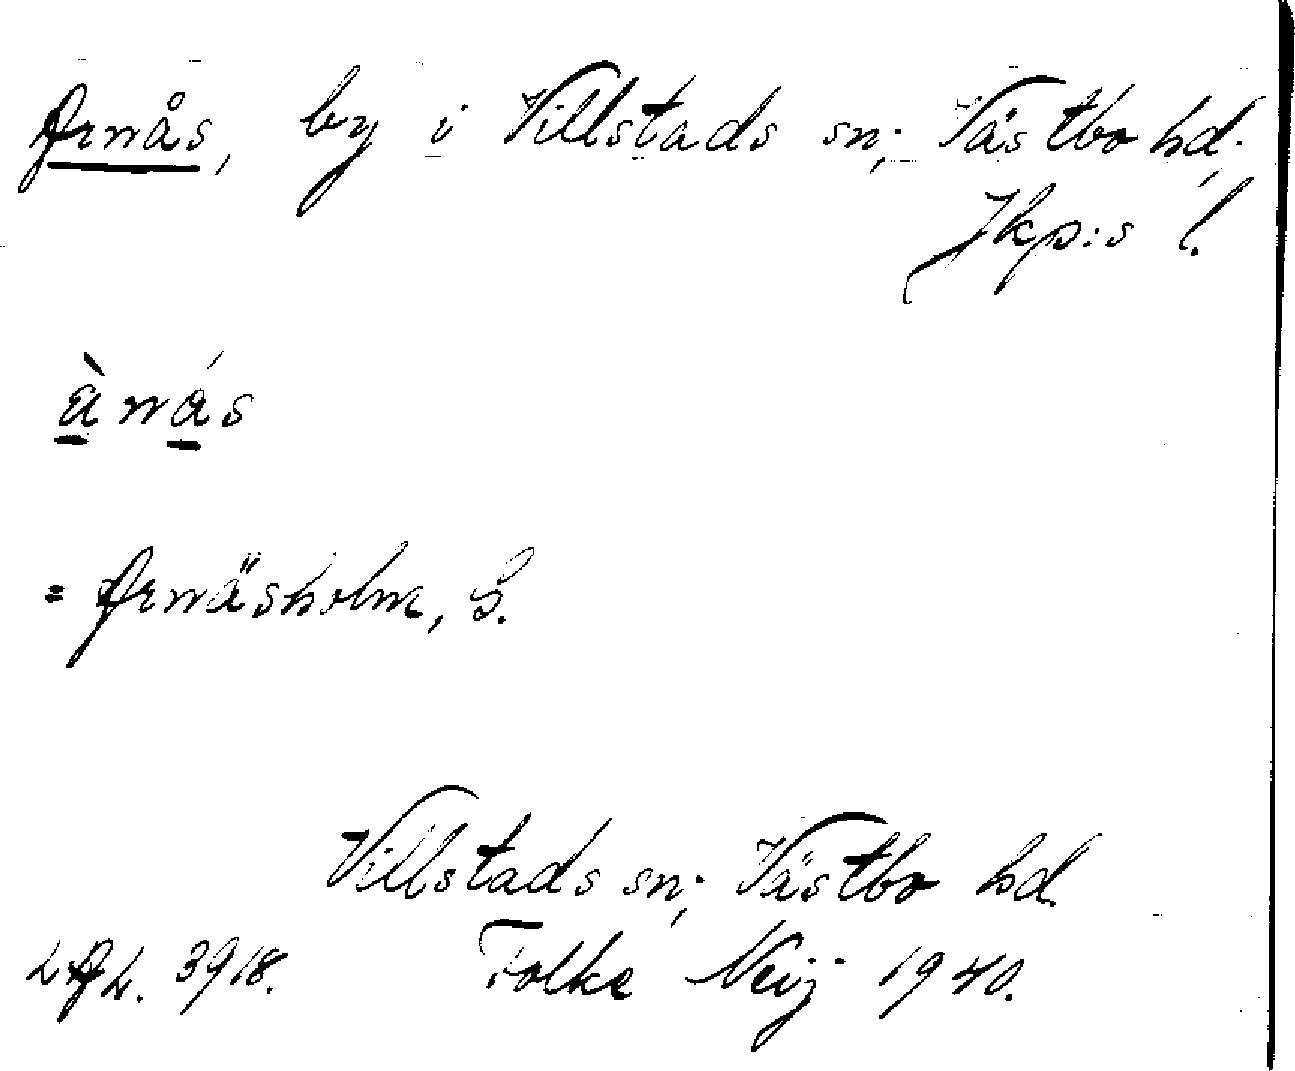 Arnås, by i Villstads sn; Västbo hd,
Jkp:s l.
ànás
= Arnäsholm, S.
Villstads sn; Västbo hd
LAL. 3918. Folke Neij 1940.